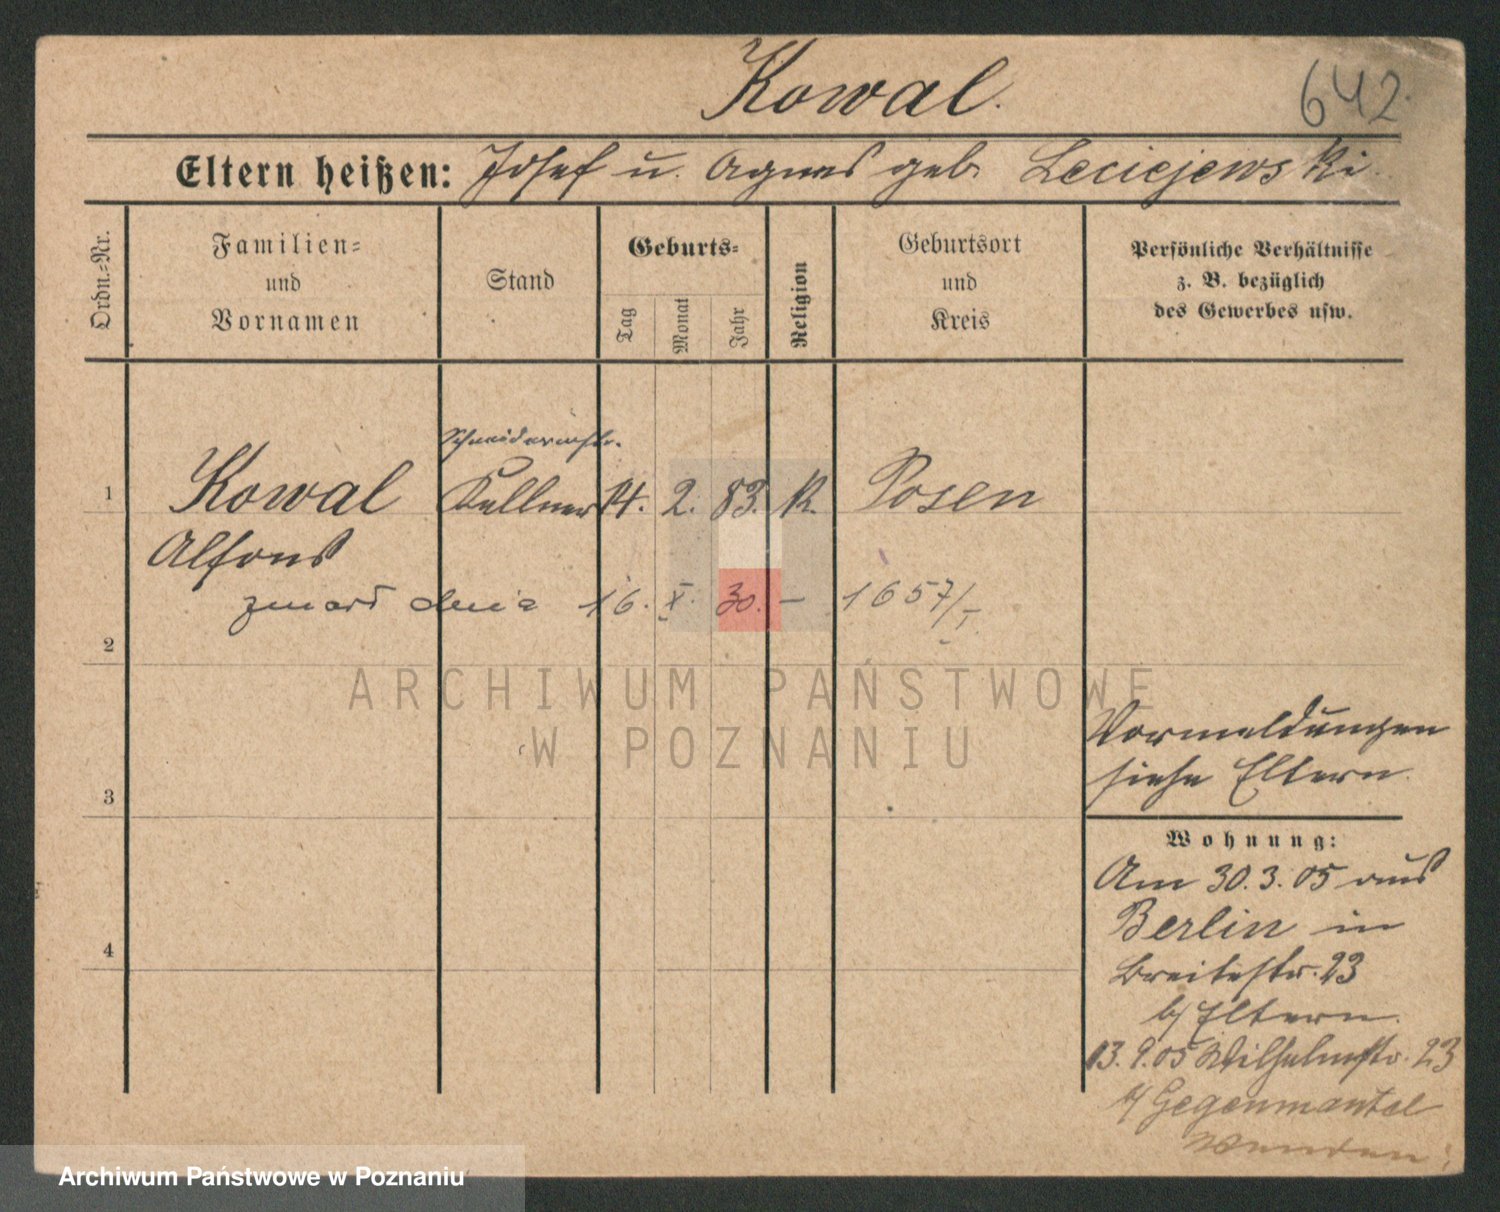 Kowal.
642
Eltern heißen: Josef u. Agnes geb. Leciejewski.
Ordn.=Nr.
Familien=
und
Vornamen
Stand
Geburts=
Tag
Monat
Jahr
Religion
Geburtsort
und
Kreis
Persönliche Verhältnisse
z. B. bezüglich
des Gewerbes usw.
Schneidermstr.
1 Kowal Kellner 14. 2. 83. K. Posen
Alfons
zmarł dnia 16. X. 30. – 1657/I.
2
ARCHIWUM PAŃSTWOWE
W POZNANIU
Vormeldungen
siehe Eltern.
3
Wohnung:
Am 30.3.05 aus
Berlin in
Breitestr. 23
b/ Eltern.
4
13.9.05 Wilhelmstr. 23
b/ Gegenmantel
Wenden!
Archiwum Państwowe w Poznaniu